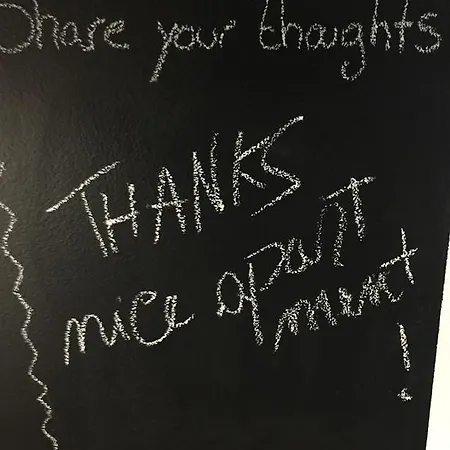 Share your thoughts
THANKS
nice apart
ment!